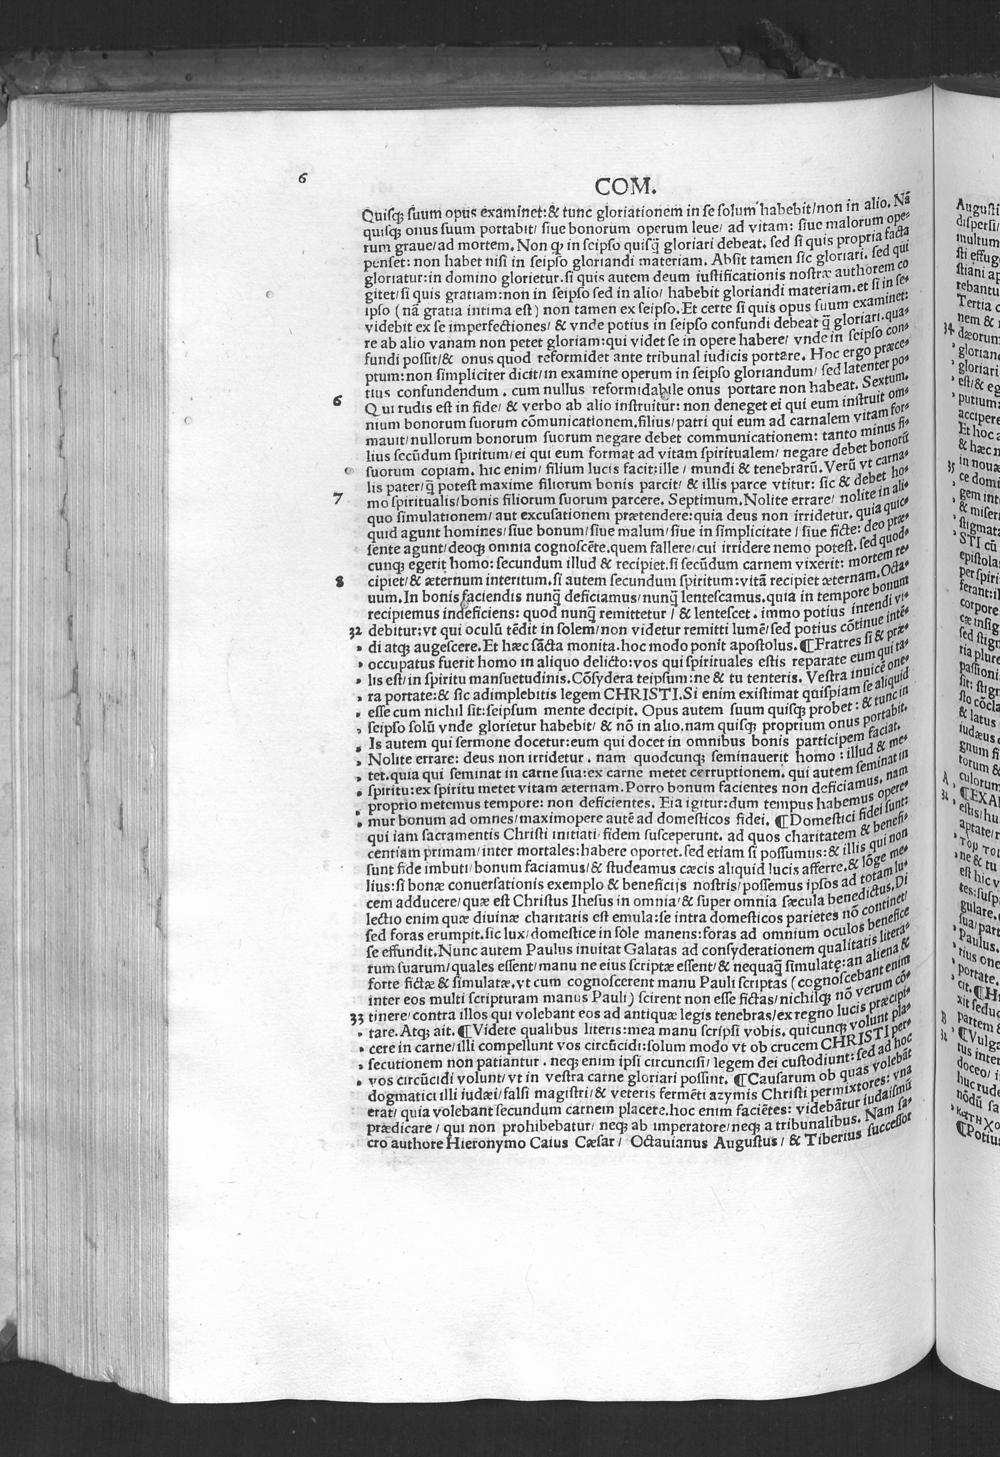 6
COM.
Quiſqꝫ ſuum opus examinet:& tunc gloriationem in ſe ſolum habebit/non in alio. Nã
quiſqꝫ onus ſuum portabit/ ſiue bonorum operum leue/ ad vitam: ſiue malorum ope-
rum graue/ad mortem. Non ꝙ in ſeipſo quiſq̃ gloriari debeat. ſed ſi quis propria facta
penſet: non habet niſi in ſeipſo gloriandi materiam. Abſit tamen ſic gloriari. ſed qui
gloriatur:in domino glorietur. ſi quis autem deum iuſtificationis noſtræ authorem co
gitet/ſi quis gratiam:non in ſeipſo ſed in alio/ habebit gloriandi materiam.et ſi in ſe-
ipſo (nã gratia intima eſt) non tamen ex ſeipſo. Et certe ſi quis opus ſuum examinet:
videbit ex ſe imperfectiones/ & vnde potius in ſeipſo confundi debeat q̃ gloriari. qua-
re ab alio vanam non petet gloriam:qui videt ſe in opere habere/ vnde in ſeipſo con-
fundi poſſit/& onus quod reformidet ante tribunal iudicis portare. Hoc ergo præce-
ptum:non ſimpliciter dicit/in examine operum in ſeipſo gloriandum/ ſed latenter po-
tius confundendum. cum nullus reformidabile onus portare non habeat. Sextum.
6 Qui rudis eſt in fide/ & verbo ab alio inſtruitur: non deneget ei qui eum inſtruit om-
nium bonorum ſuorum cõmunicationem. filius/ patri qui eum ad carnalem vitam for-
mauit/nullorum bonorum ſuorum negare debet communicationem: tanto minus fi-
lius ſecũdum ſpiritum/ei qui eum format ad vitam ſpiritualem/ negare debet bonorũ
ſuorum copiam. hic enim/ filium lucis facit:ille/ mundi & tenebrarũ. Verũ vt carna-
lis pater/q̃ poteſt maxime filiorum bonis parcit/ & illis parce vtitur: ſic & debet ho-
7 mo ſpiritualis/bonis filiorum ſuorum parcere. Septimum. Nolite errare/ nolite in ali-
quo ſimulationem/ aut excuſationem prætendere:quia deus non irridetur. quia quic-
quid agunt homines/ſiue bonum/ſiue malum/ſiue in ſimplicitate/ ſiue ficte: deo præ-
ſente agunt/deoqꝫ omnia cognoſcẽte.quem fallere/cui irridere nemo poteſt. ſed quod-
cunqꝫ egerit homo: ſecundum illud & recipiet. ſi ſecũdum carnem vixerit: mortem re-
8 cipiet/& æternum interitum. ſi autem ſecundum ſpiritum:vitã recipiet æternam. Octa-
uum. In bonis faciendis nunq̃ deficiamus/nunq̃ lenteſcamus.quia in tempore bonum
recipiemus indeficiens: quod nunq̃ remittetur/ & lenteſcet. immo potius intendi vi-
32 debitur:vt qui oculũ tẽdit in ſolem/non videtur remitti lumẽ/ſed potius cõtinue intẽ-
di atqꝫ augeſcere. Et hæc ſãcta monita. hoc modo ponit apoſtolus. ¶Fratres ſi & præ-
occupatus fuerit homo in aliquo delicto:vos qui ſpirituales eſtis reparate eum qui ta-
lis eſt/in ſpiritu manſuetudinis. Cõſydera teipſum:ne & tu tenteris. Veſtra inuicẽ one-
ra portate:& ſic adimplebitis legem CHRISTI. Si enim exiſtimat quiſpiam ſe aliquid
eſſe cum nichil ſit:ſeipſum mente decipit. Opus autem ſuum quiſqꝫ probet: & tunc in
ſeipſo ſolũ vnde glorietur habebit/ & nõ in alio.nam quiſqꝫ proprium onus portabit.
Is autem qui ſermone docetur:eum qui docet in omnibus bonis participem faciat.
Nolite errare: deus non irridetur. nam quodcunqꝫ ſeminauerit homo: illud & me-
tet.quia qui ſeminat in carne ſua:ex carne metet corruptionem. qui autem ſeminat in
ſpiritu:ex ſpiritu metet vitam æternam. Porro bonum facientes non deficiamus. nam
proprio metemus tempore: non deficientes. Eia igitur:dum tempus habemus opere-
mur bonum ad omnes/maximopere autẽ ad domeſticos fidei. ¶Domeſtici fidei ſunt:
qui iam ſacramentis Chriſti initiati/fidem ſuſceperunt. ad quos charitatem & benefi-
centiam primam/inter mortales:habere oportet. ſed etiam ſi poſſumus:& illis qui non
ſunt fide imbuti/ bonum faciamus/& ſtudeamus cæcis aliquid lucis afferre.& lõge me-
lius:ſi bonæ conuerſationis exemplo & beneficijs noſtris/poſſemus ipſos ad totam lu-
cem adducere/quæ eſt Chriſtus Iheſus in omnia/& ſuper omnia ſæcula benedictus. Di
lectio enim quæ diuinæ charitatis eſt emula:ſe intra domeſticos parietes nõ continet/
ſed foras erumpit. ſic lux/domeſtice in ſole manens:foras ad omnium oculos benefice
ſe effundit. Nunc autem Paulus inuitat Galatas ad conſyderationem qualitatis litera-
rum ſuarum/quales eſſent/manu ne eius ſcriptæ eſſent/& nequaq̃ ſimulatę:an aliena &
forte fictæ & ſimulatæ.vt cum cognoſcerent manu Pauli ſcriptas (cognoſcebant enim
inter eos multi ſcripturam manus Pauli) ſcirent non eſſe fictas/nichilqꝫ nõ verum cõ-
33 tinere/contra illos qui volebant eos ad antiquæ legis tenebras/ex regno lucis præcipi-
tare. Atqꝫ ait. ¶Videte qualibus literis:mea manu ſcripſi vobis. quicunqꝫ volunt pla-
cere in carne/illi compellunt vos circũcidi:ſolum modo vt ob crucem CHRISTI per-
ſecutionem non patiantur. neqꝫ enim ipſi circunciſi/ legem dei cuſtodiunt: ſed ad hoc
vos circũcidi volunt/vt in veſtra carne gloriari poſſint. ¶Cauſarum ob quas volebãt
dogmatici illi iudæi/falſi magiſtri/& veteris fermẽti azymis Chriſti permixtores: vna
erat/quia volebant ſecundum carnem placere.hoc enim faciẽtes: videbãtur iudaiſmũ
prædicare/ qui non prohibebatur/ neqꝫ ab imperatore/neqꝫ a tribunalibus. Nam ſa-
cro authore Hieronymo Caius Cæſar/ Octauianus Auguſtus/ & Tiberius ſucceſſor